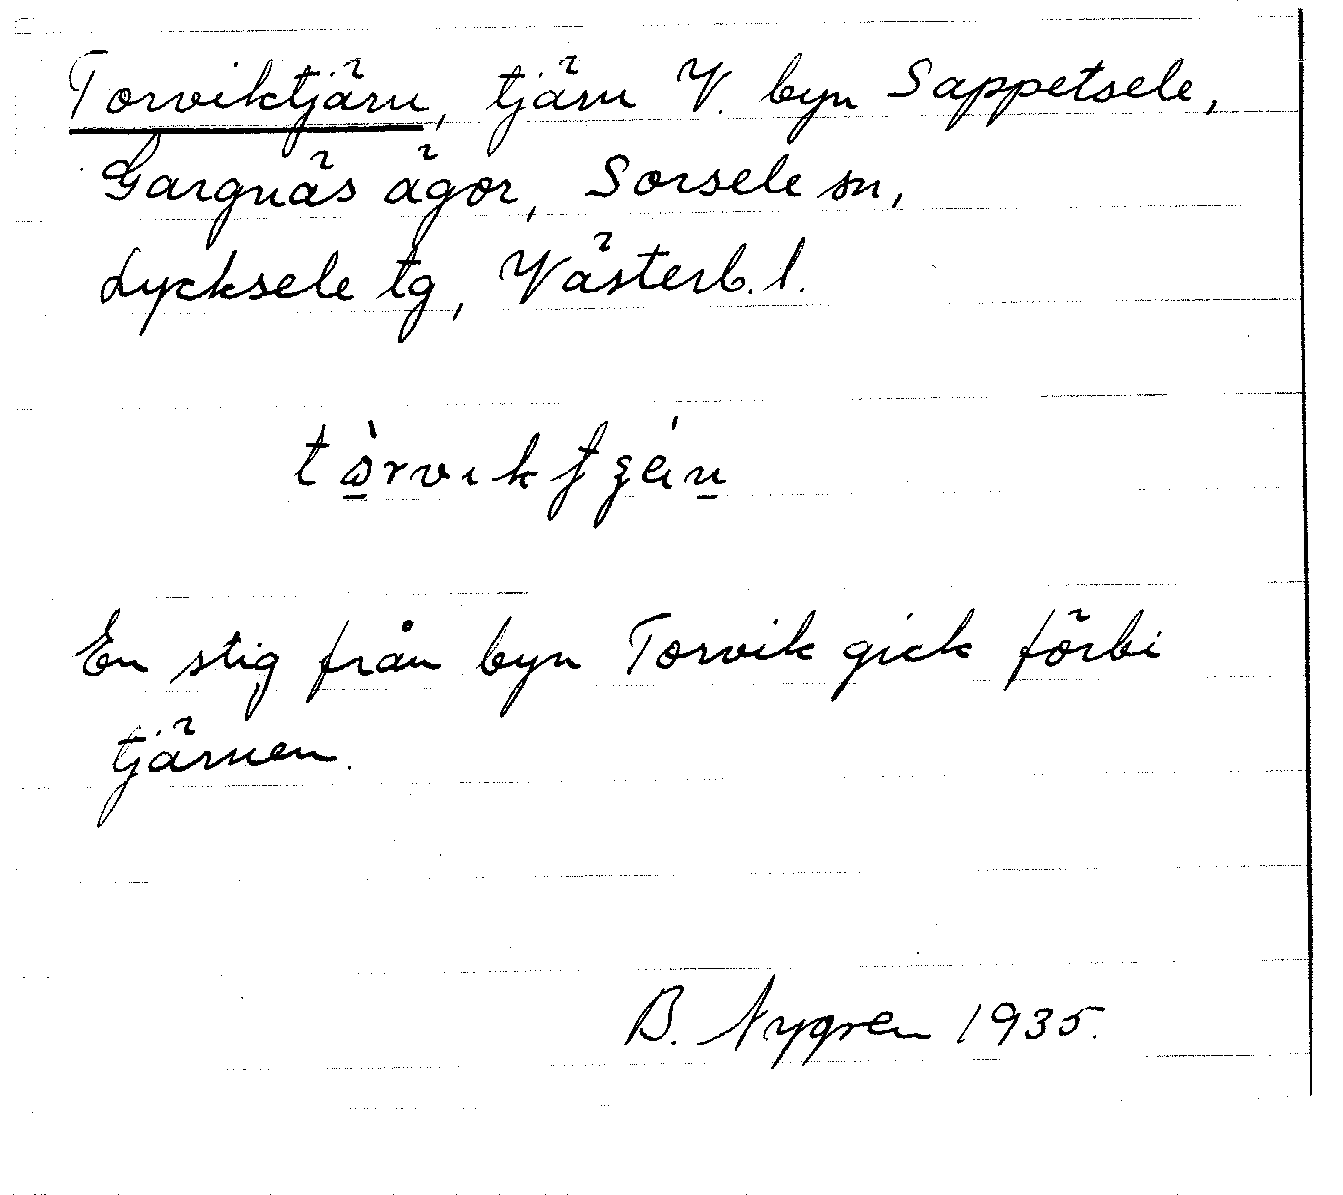 Torviktjärn, tjärn V. byn Sappetsele,
Gargnäs ägor, Sorsele sn,
Lycksele tg, Västerb. l.
En stig från byn Torvik gick förbi
tjärnen.
B. Nygren 1935.